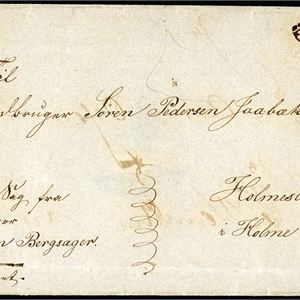 Til
Søren Pedersen Jaabæk
Sag fra
Bergsager.
Holmes
i Holme